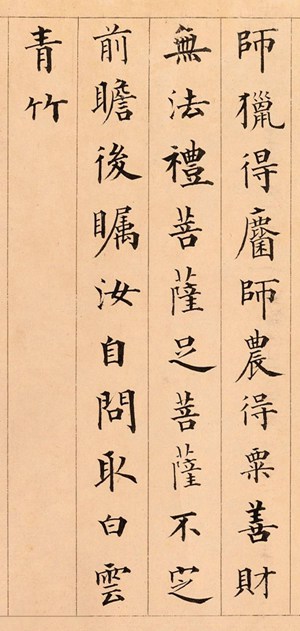 師獵得麕師農得粟善財
無法禮菩薩足菩薩不
前瞻後矚汝自問取白雲
青竹